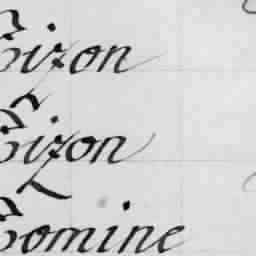 Gizon
Gizon
Gomine